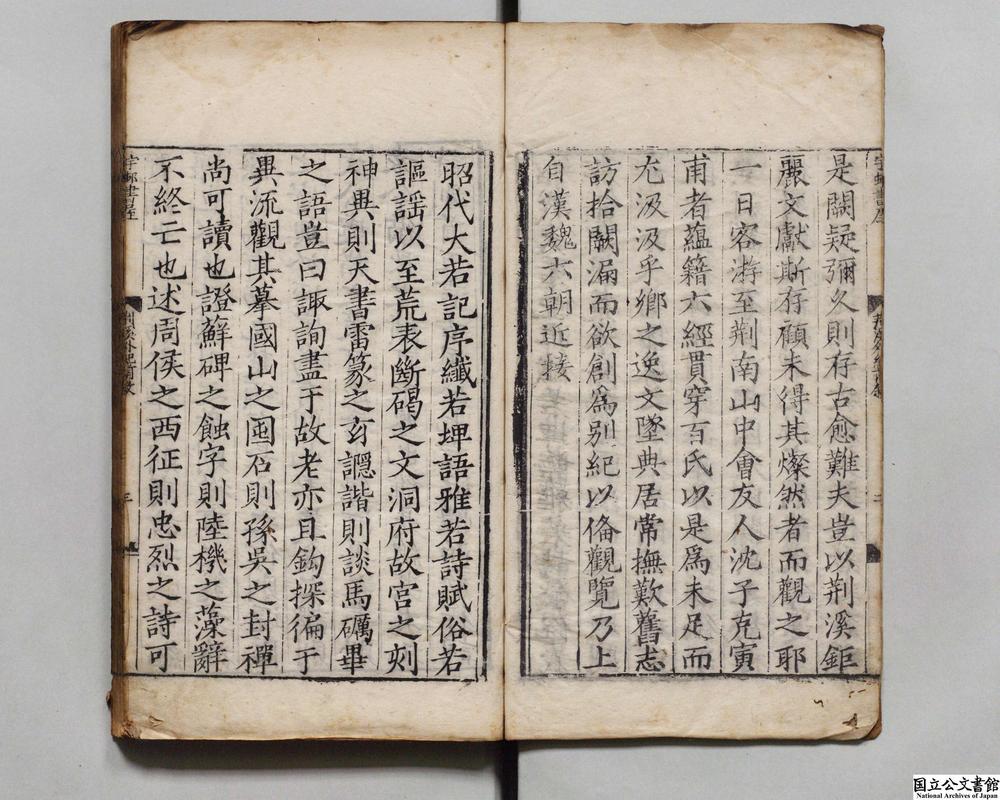 是闕疑彌久則存古愈難夫豈以荆溪鉅
麗文獻斯存顧未得其燦然者而觀之耶
一日客游至荆南山中會友人沈子克寅
甫者蘊籍六經貫穿百氏以是爲未足而
尤汲汲乎鄉之逸文墜典居常撫歎舊志
訪拾闕漏而欲創爲别紀以俻觀覽乃上
自漢魏六朝近接
昭代大若記序纖若埤語雅若詩賦俗若
謳謡以至荒表斷碣之文洞府故宫之刻
神異則天書雷篆之玄讔諧則談馬礪畢
之語豈曰諏詢盡于故老亦且鈎探徧于
異流觀其摹國山之囤石則孫吴之封禪
尚可讀也證蘚碑之蝕字則陸機之藻辭
不終亡也述周侯之西征則忠烈之詩可
二
三
国立公文書館
National Archives of Japan